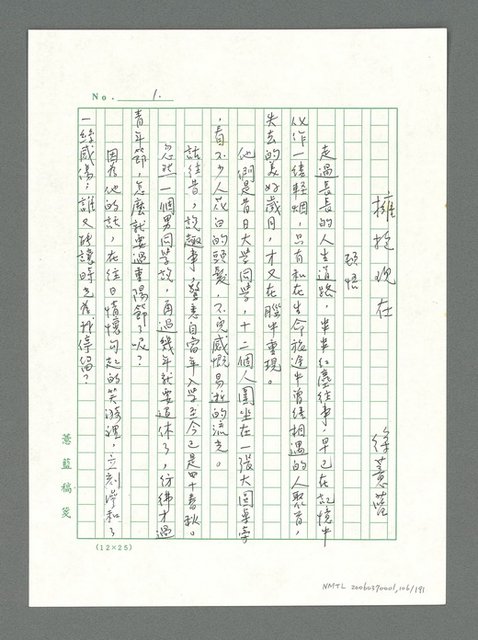 No. 1.
擁抱現在
徐薏藍
領悟
走過長長的人生道路,半生紅塵往事,早已在記憶中
化作一縷輕烟,只有和在生命旅途中曾經相遇的人聚首,
失去的美好歲月,才又在腦中重現。
他們是昔日大學同學,十二個人圍坐在一張大圓桌旁
,看不少人花白的頭髮,不免感慨易逝的流光。
話往昔,說趣事,驚悉自當年入學至今已是四十春秋。
忽然一個男同學說,再過幾年就要退休了,彷彿才過
青年節,怎麼就要過重陽節了呢?
因為他的話,在往日情懷勾起的笑語裡,立刻滲和了
一絲感傷,誰又能讓時光為誰停留?
薏藍稿箋
(12×25)
NMTL 20060370001,106/191